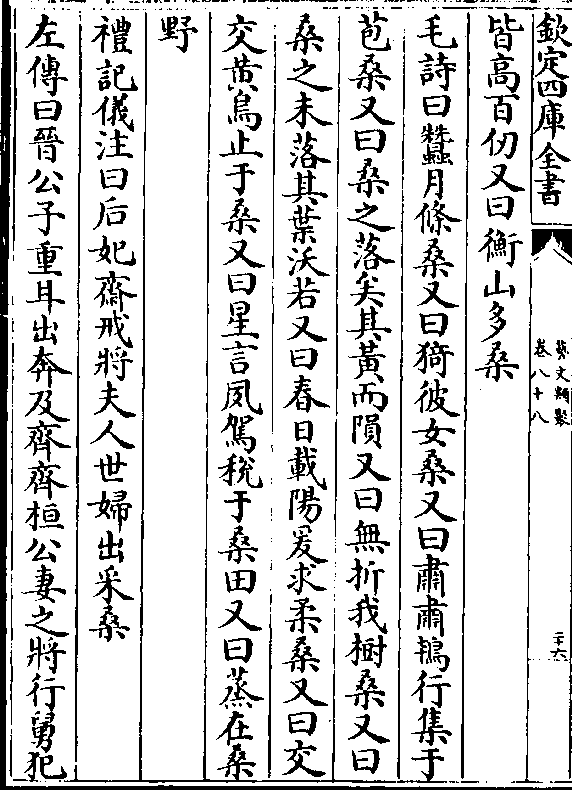 欽定四庫全書
藝文類聚
卷八十八
二十六
皆高百仞又曰衡山多桑
毛詩曰蠶月條桑又曰猗彼女桑又曰肅肅鴇行集于
苞桑又曰桑之落矣其黃而隕又曰無折我樹桑又曰
桑之未落其葉沃若又曰春日載陽爰求柔桑又曰交
交黃鳥止于桑又曰星言夙駕稅于桑田又曰蒸在桑
野
禮記儀注曰后妃齋戒將夫人世婦出采桑
左傳曰晉公子重耳出奔及齊齊桓公妻之將行舅犯